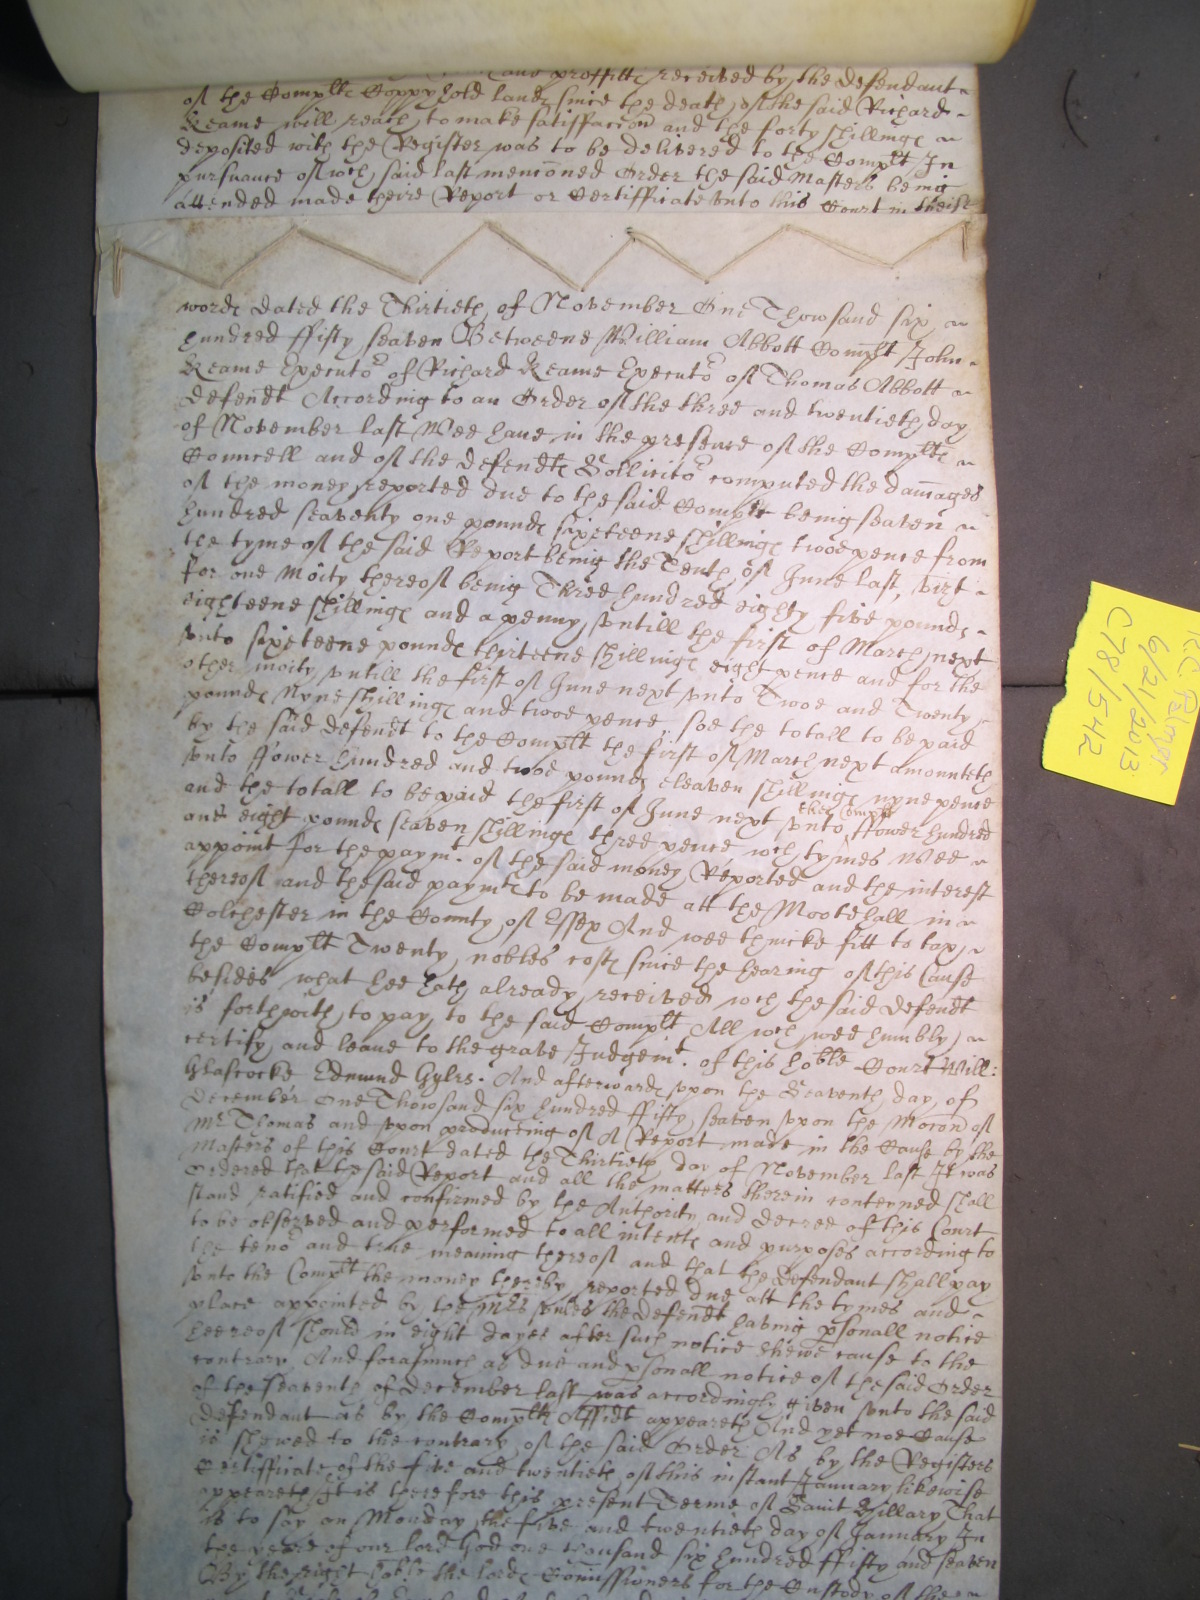 and proffitts received by the defendant
of the Complts Coppyhold lands since the death of the said Richard
Reame will reach to make satisfaccon and the forty shillings
deposited with the Register was to be delivered to the Complt In
pursuance of wch said last mencioned Order the said Masters being
attended made theire Report or Certifficate unto this Court in theise
words dated the Thirtieth of November One Thowsand six
hundred ffifty seaven Betweene William Abbott Complt John
Reame Executor of Richard Reame Executor of Thomas Abbott
Defendt According to an Order of the three and twentieth day
of November last Wee have in the presence of the Complts
Councell and of the defendts Sollicitor computed the damages
of the money reported due to the said Complt being seaven
hundred seaventy one pounds sixteene shillings twoe pence from
the tyme of the said Report being the Tenth of June last, vizt
for one Moity thereof being Three hundred eighty five pounds
eighteene shillings and a penny, untill the first of March next
unto sixteene pounds thirteene shillings eight pence and for the
other moity untill the first of June next unto Twoe and Twenty
pounds Nyne shillings and twoe pence soe the totall to be paid
by the said defendt to the Complt the first of March next amounteth
unto ffower hundred and twoe pounds eleaven shillings nyne pence
and the totall to be paid the first of June next unto the Complt ffower hundred
and eight pounds seaven shillings three pence wch tymes Wee
appoint for the paymt. of the said money Reported and the interest
thereof and the said paymts to be made att the Mootehall in
Colchester in the County of Essex And wee thincke fitt to tax
the Complt Twenty nobles costs since the hearing of this Cause
besides what hee hath already received wch the said defendt
is forthwith to pay to the said Complt All wch wee humbly
certify and leave to the grave Judgemt. of this hoble Court Will:
Glascocke Edmund Gyles. And afterwards upon the Seaventh day of
December One Thowsand six hundred ffifty seaven upon the Mocon of
Mr Thomas and upon producting of A Report made in the Cause by the
Masters of this Court dated the Thirtieth day of November last It was
Ordered that the said Report and all the matters therein conteyned shall
stand ratified and confirmed by the Authority and decree of this Court
to be observed and performed to all intents and purposes according to
the tenor and true meaning thereof and that the Defendant shall pay
unto the Complt the money thereby reported due att the tymes and
place appointed by the Mrs unles the Defendt having psonall notice
heereof should in eight dayes after such notice shewe cause to the
contrary And forasmuch as due and psonall notice of the said Order
of the seaventh of December last was accordingly given unto the said
defendant as by the Complts Affidt appeareth And yet noe Cause
is shewed to the contrary of the said Order As by the Registers
Certifficate of the five and twentieth of this instant January likewise
appeareth It is therefore this present Terme of Saint Hillary That
is to say on Monday the five and twentieth day of January In
the yeare of our lord God one thousand six hundred ffifty and seaven
By the right hoble the lords Comissioners for the Custody of the
R.C. Palmer
6/21/2013
C78/542